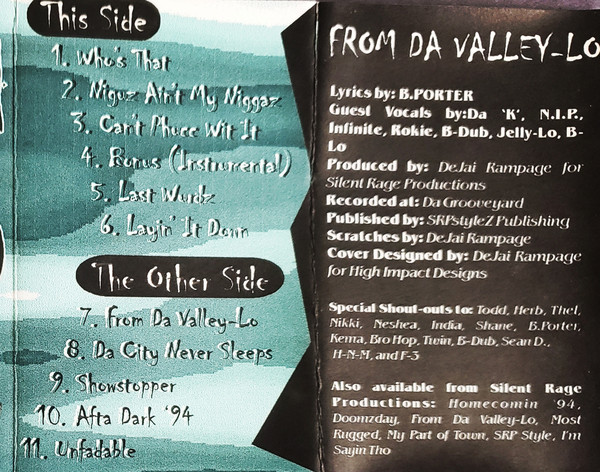 This Side
1. Who's That
2. Niguz Ain't My Niggaz
3. Can't Phucc Wit It
4. Bonus (Instrumental)
5. Last Wurdz
6. Layin' It Down
The Other Side
7. From Da Valley-Lo
8. Da City Never Sleeps
9. Showstopper
10. Afta Dark '94
11. Unfadable
FROM DA VALLEY-LO
Lyrics by: B.PORTER
Guest Vocals by:Da 'K', N.I.P.,
Infinite, Rokie, B-Dub, Jelly-Lo, B-
Lo
Produced by: DeJai Rampage for
Silent Rage Productions
Recorded at: Da Grooveyard
Published by: SRPstyleZ Publishing
Scratches by: DeJai Rampage
Cover Designed by: DeJai Rampage
for High Impact Designs
Special Shout-outs to: Todd, Herb, Thel,
Nikki, Neshea, India, Shane, B.Porter,
Kema, Bro Hop, Twin, B-Dub, Sean D.,
H-N-M, and F-3
Also available from Silent Rage
Productions: Homecomin '94,
Doomzday, From Da Valley-Lo, Most
Rugged, My Part of Town, SRP Style, I'm
Sayin Tho